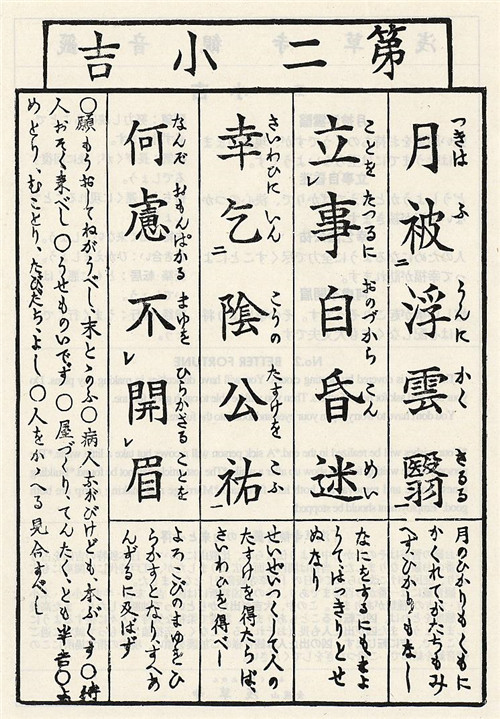 第二小吉
つきは ふ うんに かく さるる
月被浮雲翳
月のひかりもくもに
かくれてかたちもみ
へず、ひかりもなし
ことを たつるに おのづから こん めい
立事自昏迷
なにをするにもまよ
うてはつきりとせ
ぬなり
さいわひに いん こうの たすけを こふ
幸乞陰公祐
せいぜいつくして人の
たすけを得たらば
さいわひを得べし
なんぞ おもんぱかる まゆを ひらかざる ことを
何慮不開眉
よろこびのまゆをひ
らかず
んずるに及ばず
〇願もうおしてねがうべし、末とゝのふ〇病、ながびけども、本ぷくす〇待
人おそく来べし〇うせものいでず〇屋づくり、てんたく、とも半吉〇よ
めとり、むことり、たびだち、よし〇人をかゝへる見合すべし